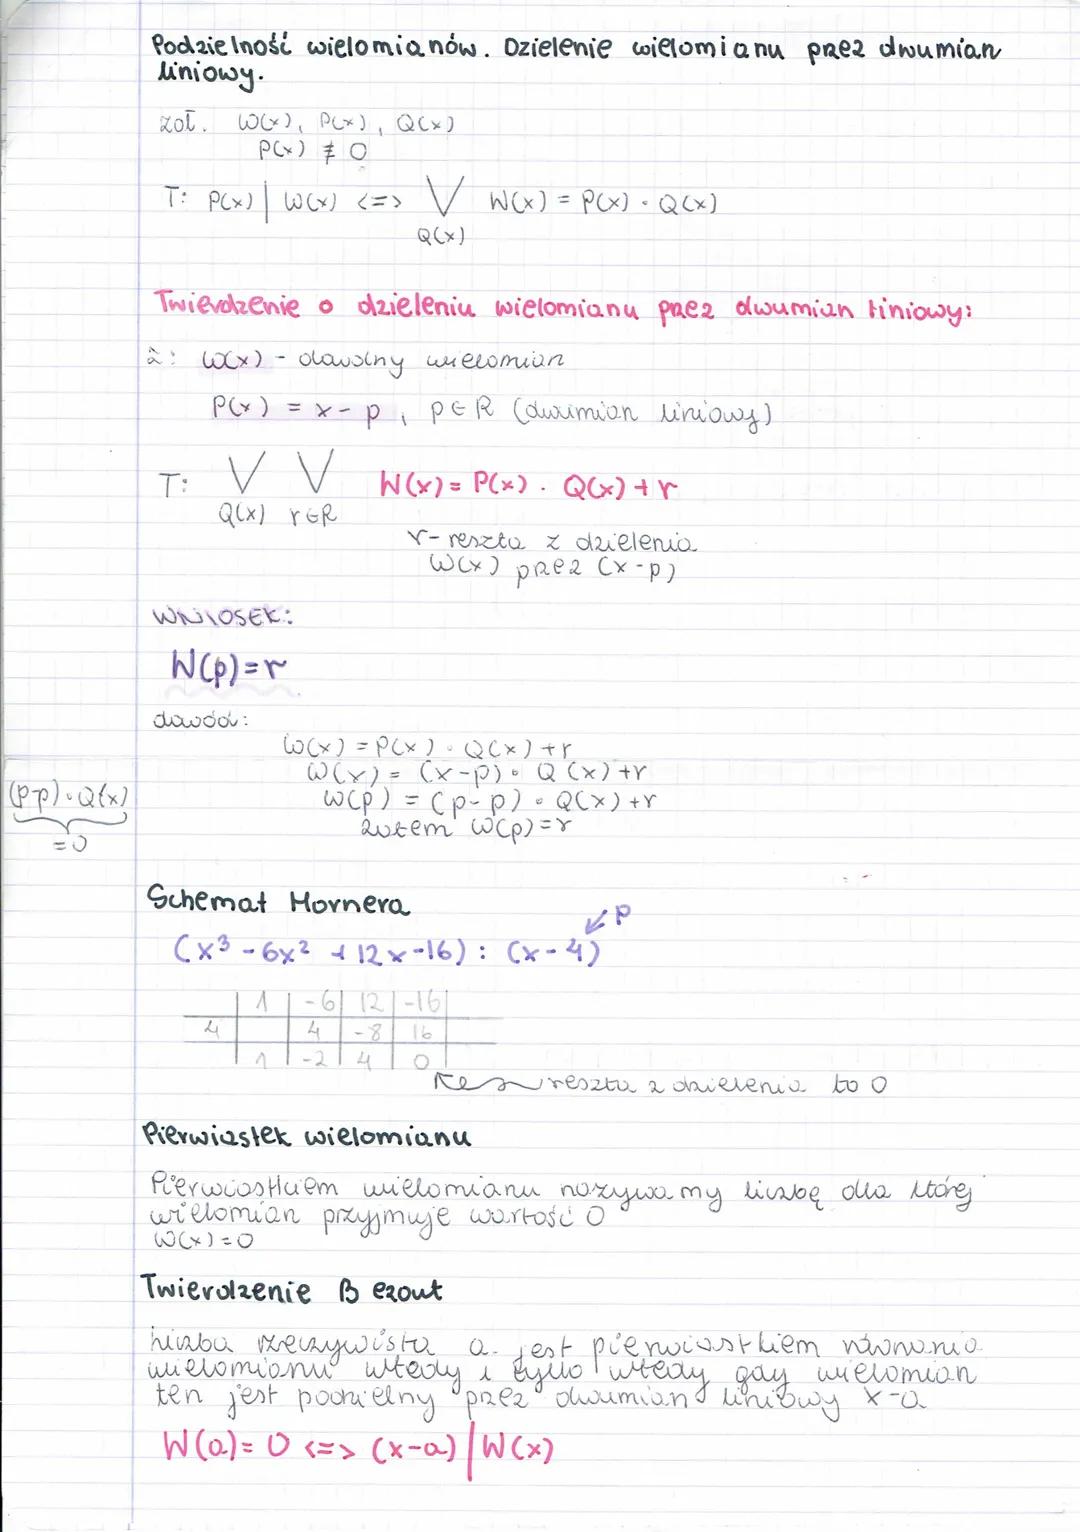 Podzielność wielomianów. Dzielenie wielomianu przez dwumian
liniowy.
zał. W(x), P(x), Q(x)
P(x) ≢ 0
T: P(x) | W(x) <=> V W(x) = P(x) · Q(x)
Q(x)
Twierdzenie o dzieleniu wielomianu przez dwumian liniowy:
Z: W(x) - dowolny wielomian
P(x) = x - p, p∈R (dwumian liniowy)
T: V V W(x) = P(x) · Q(x) + r
Q(x) r∈R
r - reszta z dzielenia
W(x) przez (x-p)
WNIOSEK:
W(p)=r
dowód:
W(x) = P(x) · Q(x) + r
W(x) = (x-p) · Q(x) + r
(p-p) · Q(x)
W(p) = (p-p) · Q(x) + r
zatem W(p)=r
=0
Schemat Hornera
p
(x³ - 6x² + 12x - 16) : (x - 4)
1 | -6 | 12 | -16
4 | | 4 | -8 | 16
1 | -2 | 4 | 0
reszta z dzielenia to 0
Pierwiastek wielomianu
Pierwiastkiem wielomianu nazywamy liczbę dla której
wielomian przyjmuje wartość 0
W(x)=0
Twierdzenie Bezout
Liczba rzeczywista a jest pierwiastkiem równania
wielomianu wtedy i tylko wtedy gdy wielomian
ten jest podzielny przez dwumian liniowy x-a
W(a) = 0 <=> (x-a) | W(x)